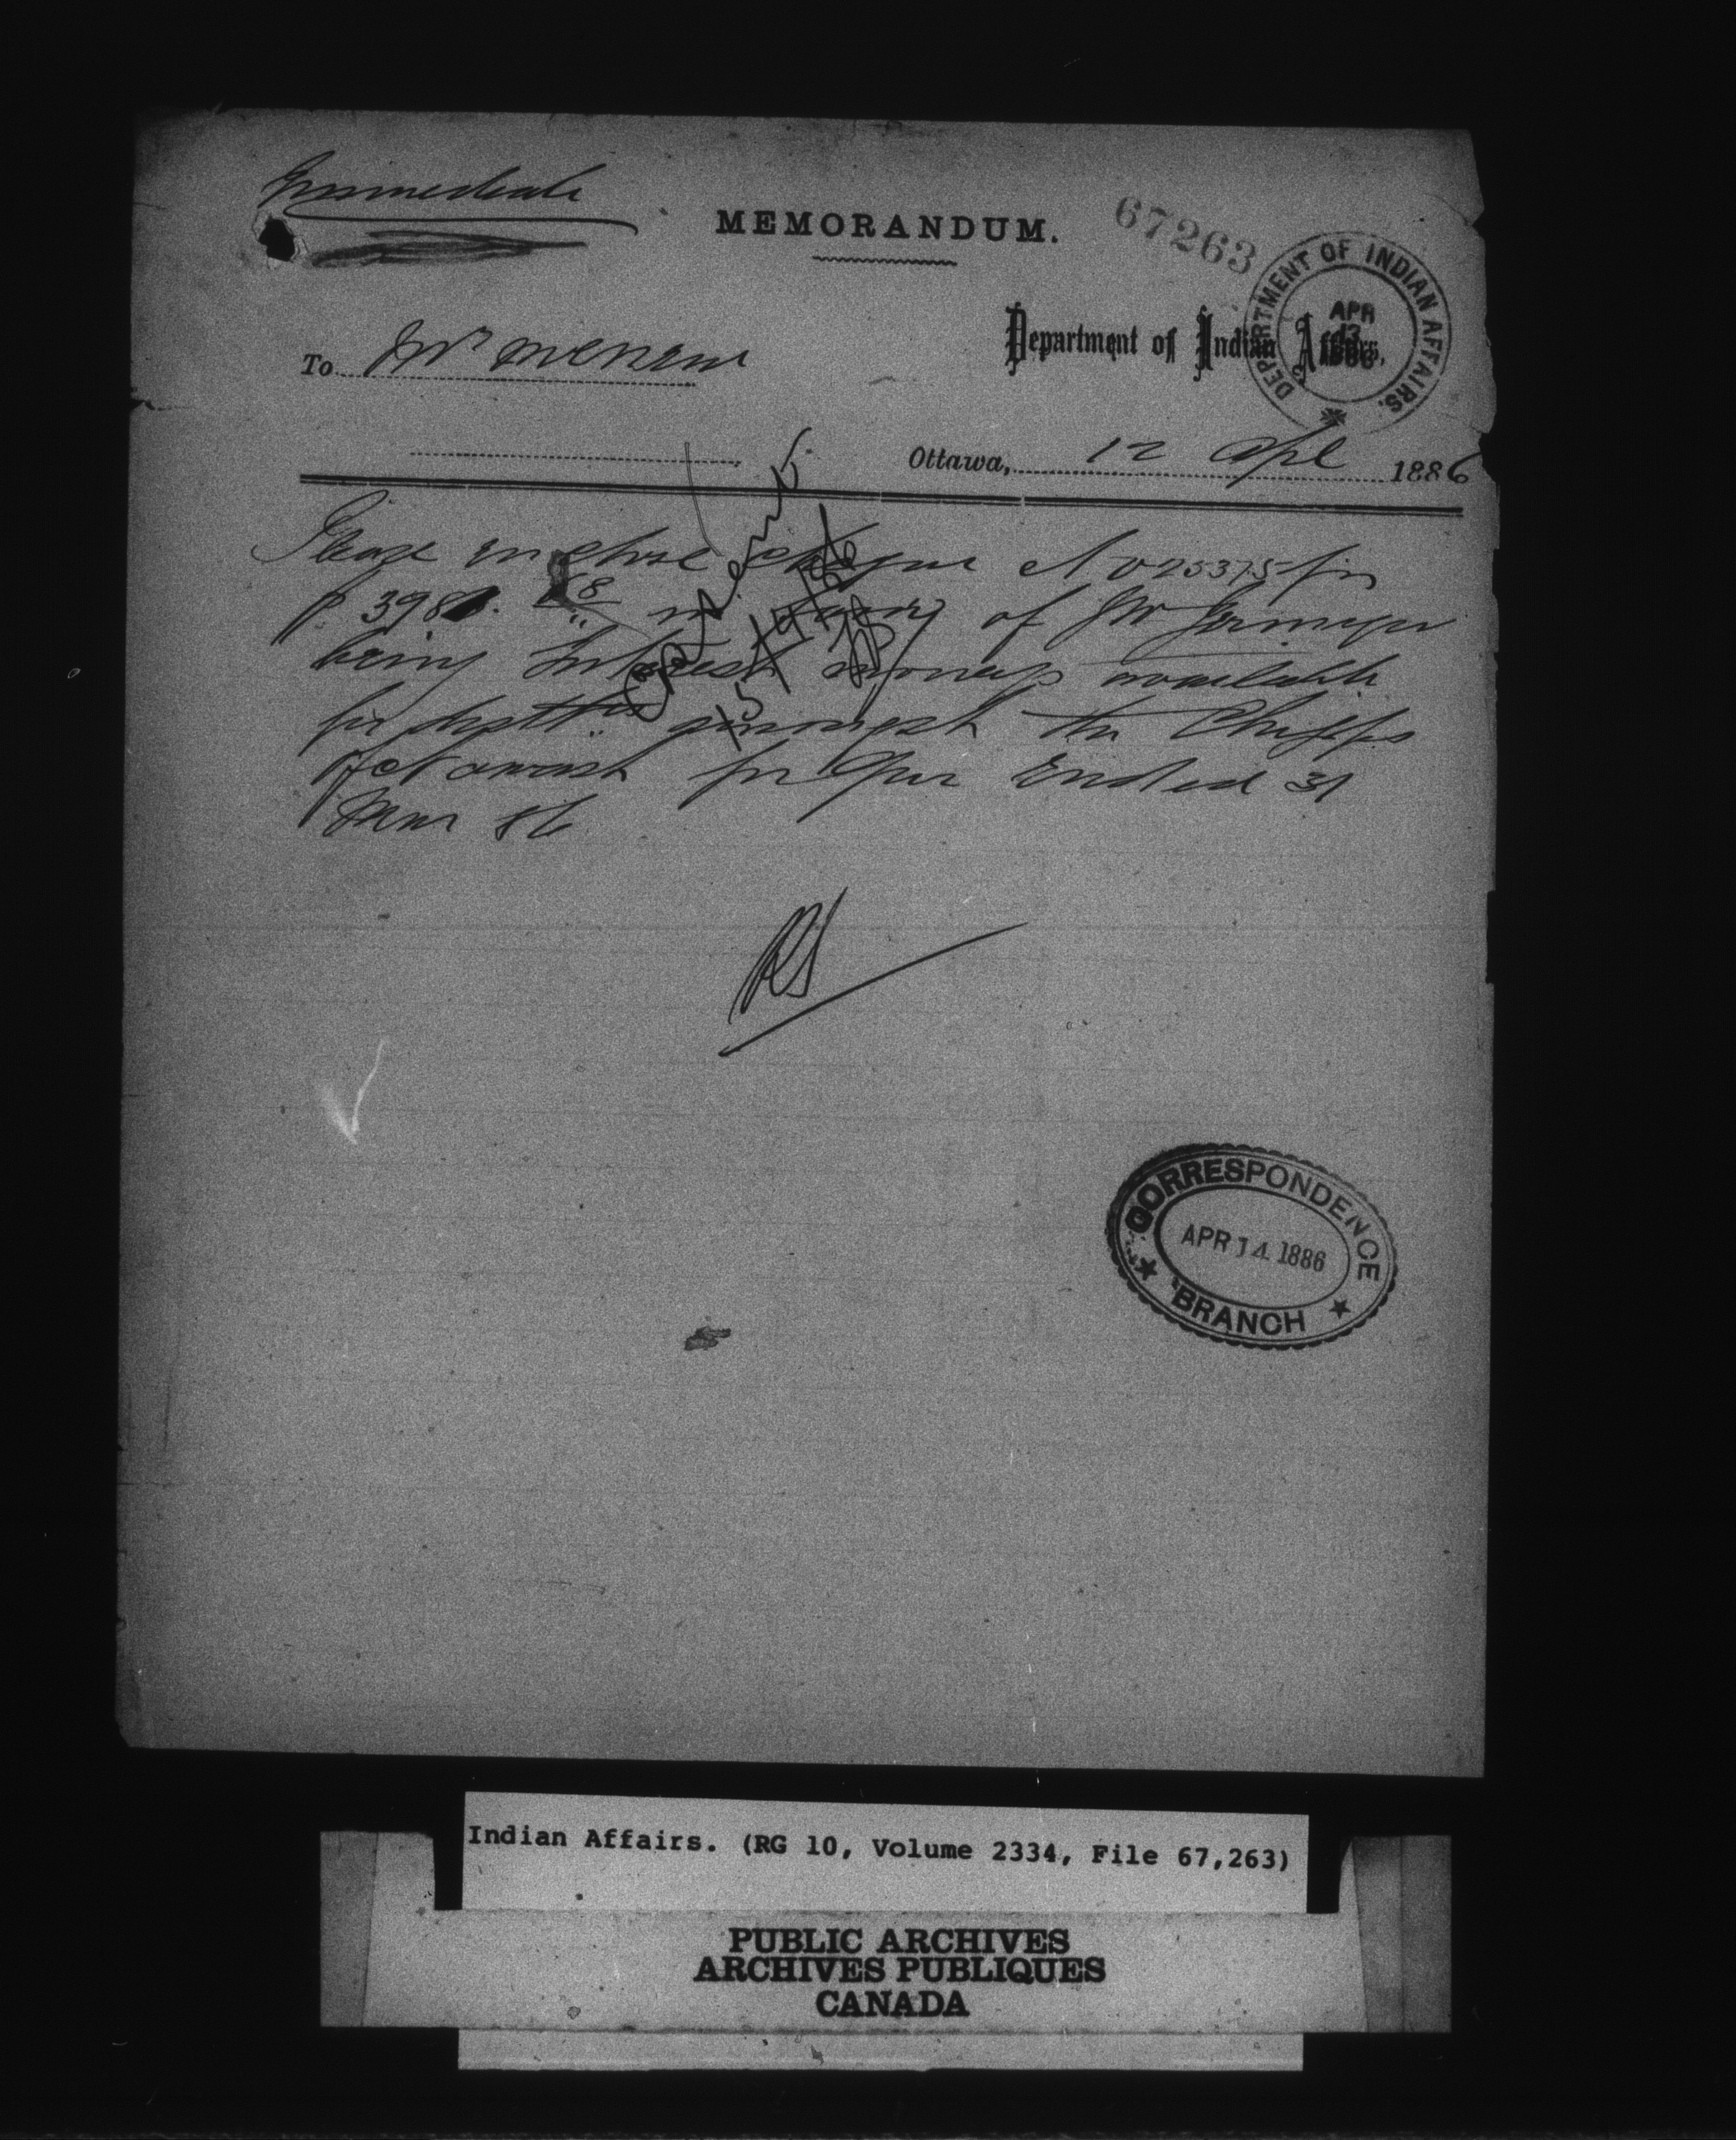 Immediate
MEMORANDUM.
67263
DEPARTMENT OF INDIAN AFFAIRS.
APR 13 1886
To Mr McNeill
Department of Indian Affairs,
Ottawa, 12 Apl 1886
Please enclose cheque No 25375 for
$ 398 . 68 in favor of Mr
being Interest moneys available
for distn. amongst the Chipps
of Nawash for Qur Ended 31
Mar 86
RS
CORRESPONDENCE
APR 14 1886
BRANCH
Indian Affairs. (RG 10, Volume 2334, File 67,263)
PUBLIC ARCHIVES
ARCHIVES PUBLIQUES
CANADA